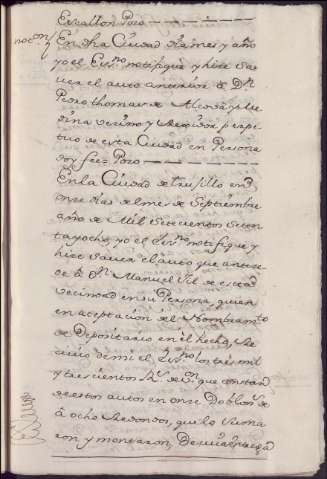 noton
En dha Ciudad dia mes y año
yo el Essno notifiqué y hice Sa-
ver el auto antezte. a Dn.
Pedro thomas de
vecino y Rexidor perpe
tuo de esta Ciudad en Persona
doy fee= Pozo
En la Ciudad de truxillo en
onze dias del mes de Septiembre
año de Mil Setecientos Seten
ta y ocho, yo el Essno notifique y
hice Saver el auto que antece
de a Dn. Manuel Gil de esta
vecindad en su Persona, quien
en aceptacion del Nombramto
de Depositario en él hecho, Re
civió de mi el Essno los tres mil
y trescientos Rs. de Vn. que constan
de estos autos en onze Doblons. de
â ocho que lo
ron, y montaron, De cuia entrega